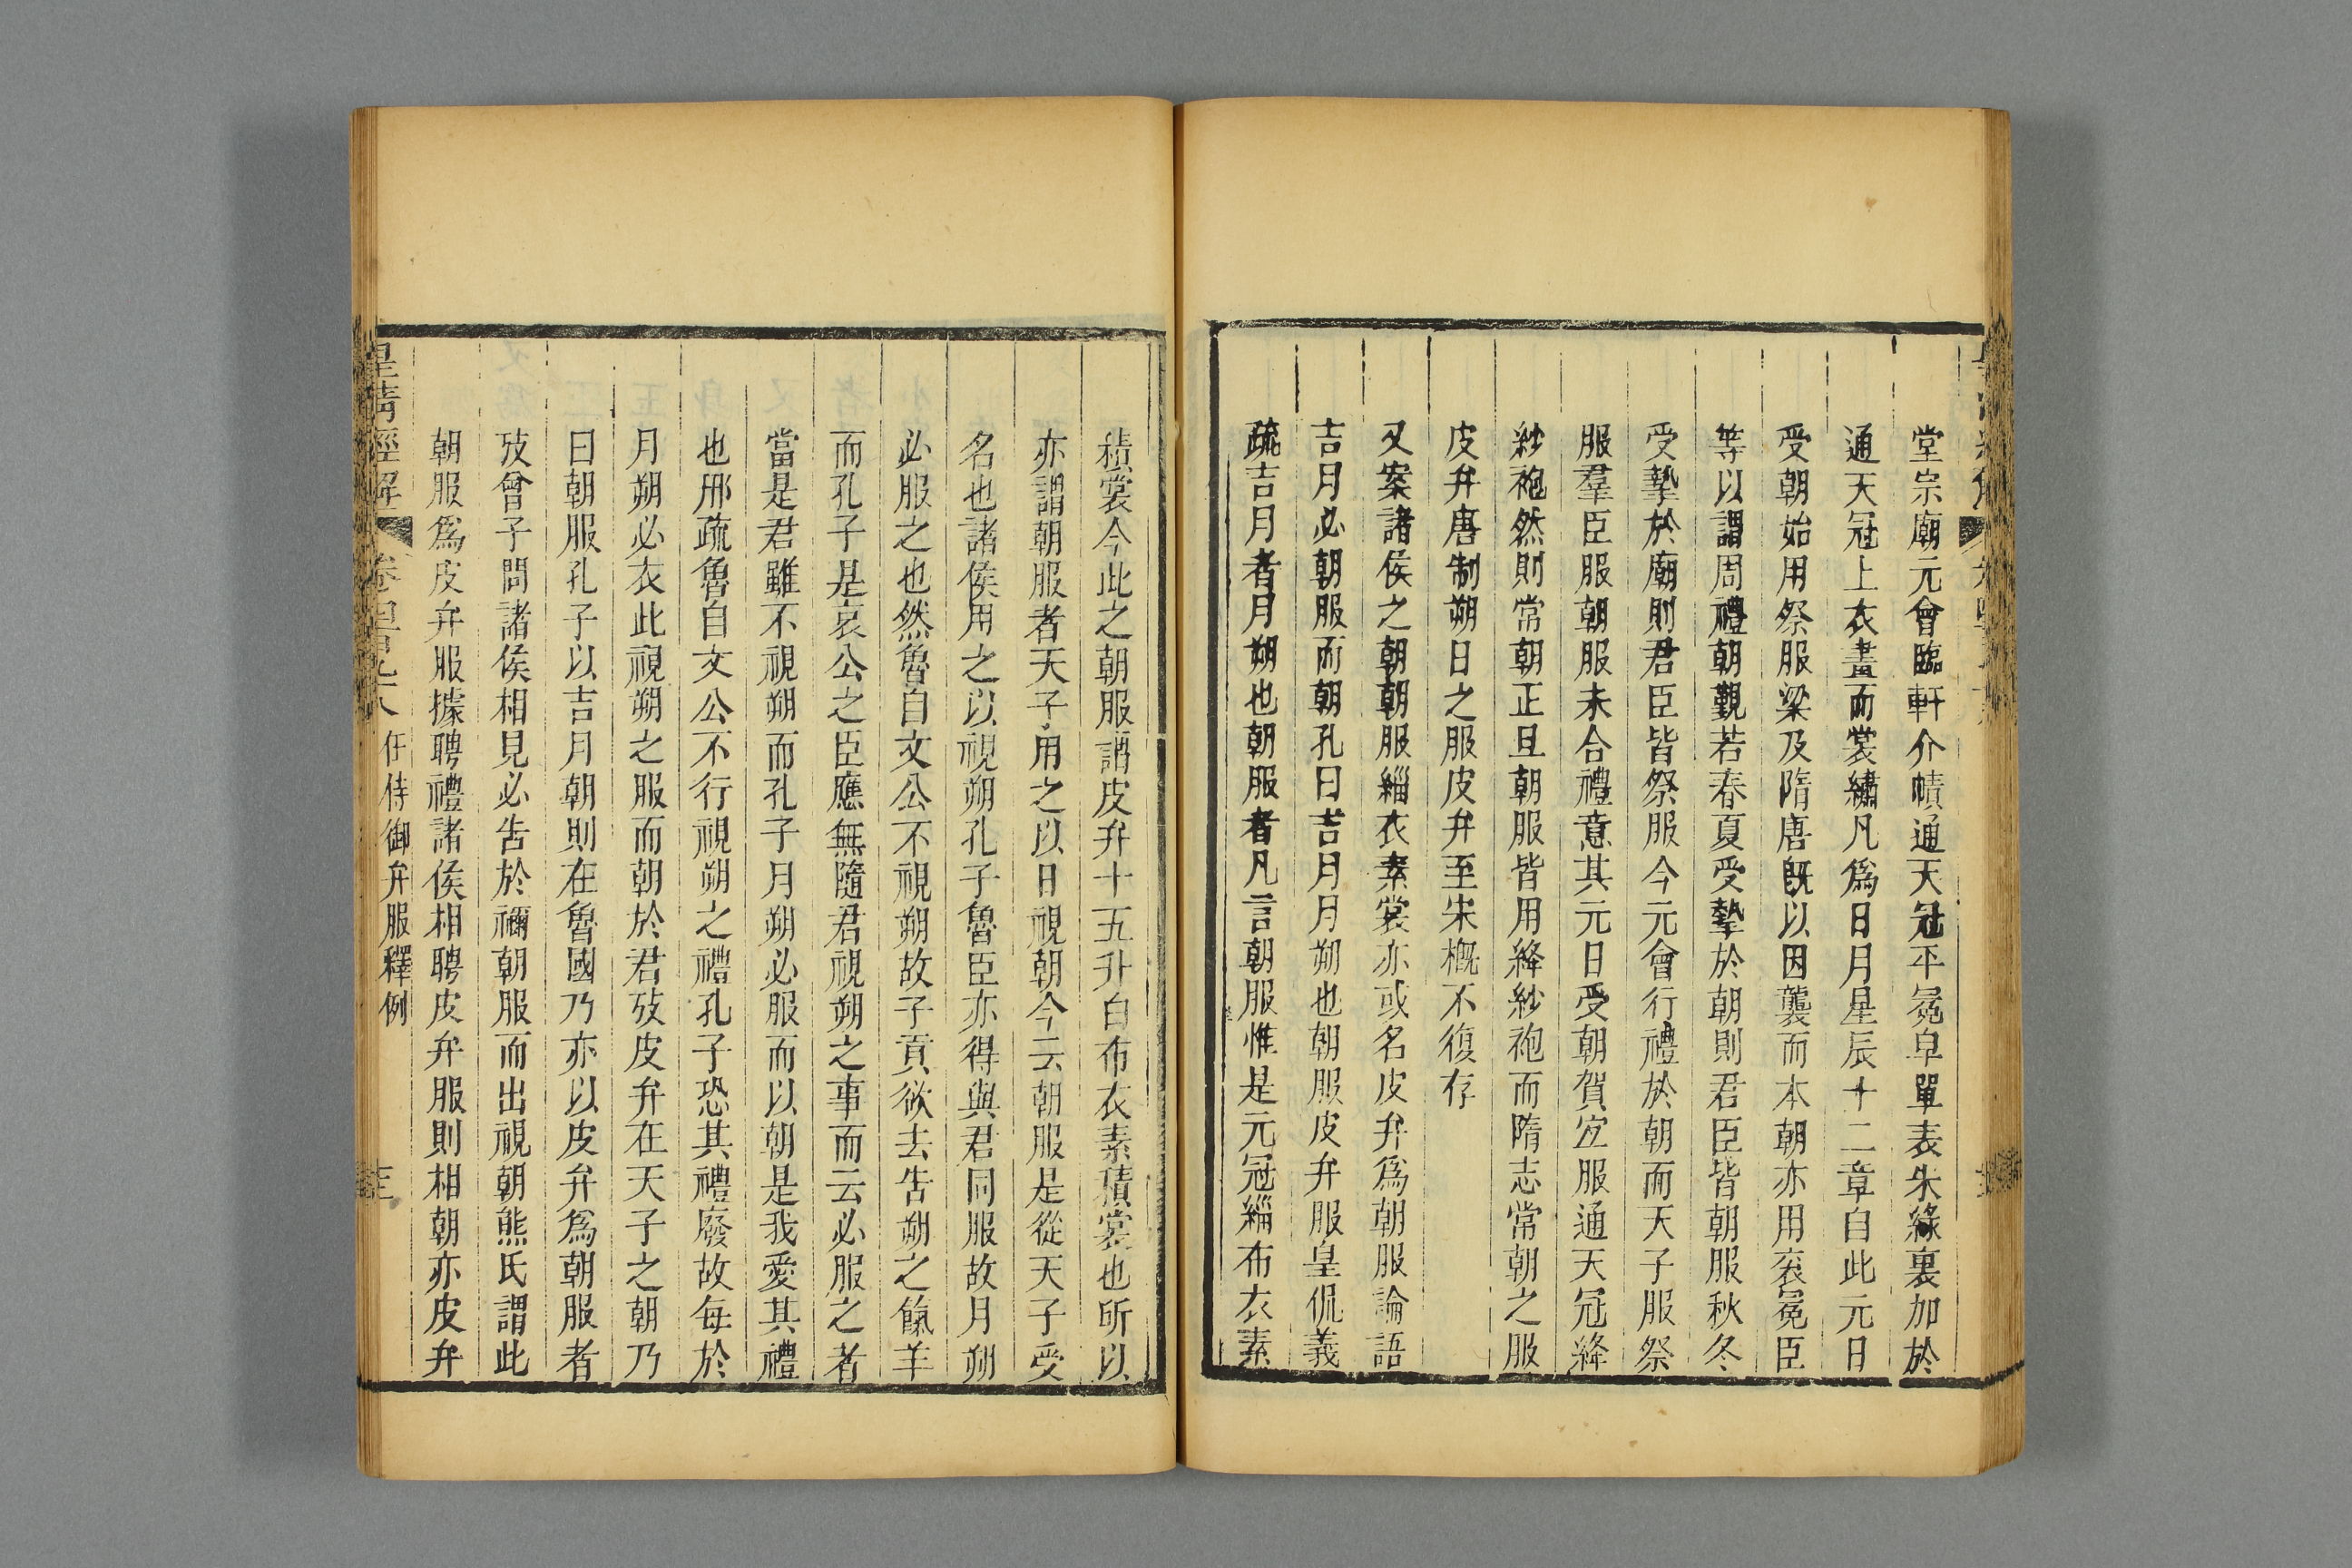 堂宗廟元會臨軒介幘通天冠平冕皁單表朱緣裏加於
通天冠上衣畫而裳繡凡爲日月星辰十二章自此元日
受朝始用祭服梁及隋唐旣以因襲而本朝亦用衮冕臣
等以謂周禮朝覲若春夏受摯於朝則君臣皆朝服秋冬
受摯於廟則君臣皆祭服今元會行禮於朝而天子服祭
服羣臣服朝服未合禮意其元日受朝賀宜服通天冠絳
紗袍然則常朝正旦朝服皆用絳紗袍而隋志常朝之服
皮弁唐制朔日之服皮弁至宋槪不復存
又案諸侯之朝朝服緇衣素裳亦或名皮弁爲朝服論語
吉月必朝服而朝孔曰吉月月朔也朝服皮弁服皇侃義
疏吉月者月朔也朝服者凡言朝服惟是元冠緇布衣素
積裳今此之朝服謂皮弁十五升白布衣素積裳也所以
亦謂朝服者天子用之以日視朝今云朝服是從天子受
名也諸侯用之以視朔孔子魯臣亦得與君同服故月朔
必服之也然魯自文公不視朔故子貢欲去告朔之餼羊
而孔子是哀公之臣應無隨君視朔之事而云必服之者
當是君雖不視朔而孔子月朔必服而以朝是我愛其禮
也邢疏魯自文公不行視朔之禮孔子恐其禮廢故每於
月朔必衣此視朔之服而朝於君攷皮弁在天子之朝乃
曰朝服孔子以吉月朝則在魯國乃亦以皮弁爲朝服者
攷曾子問諸侯相見必告於禰朝服而出視朝熊氏謂此
朝服爲皮弁服據聘禮諸侯相聘皮弁服則相朝亦皮弁
皇清經解 任侍御弁服釋例